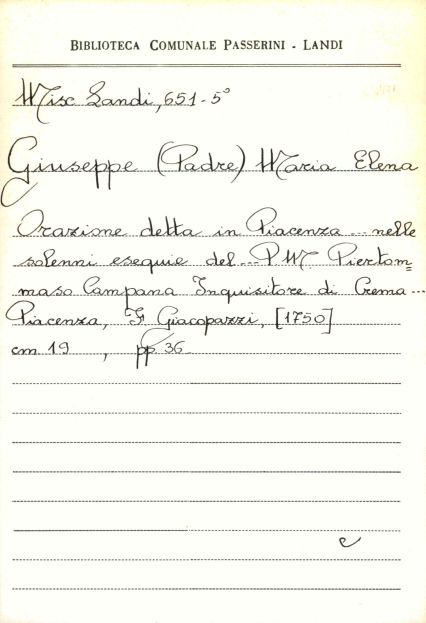 BIBLIOTECA COMUNALE PASSERINI - LANDI
Misc Landi, 651-5°
Giuseppe (Padre) Maria Elena
Orazione detta in Piacenza ... nelle
solenni esequie del ... P M Piertom=
maso Campana Inquisitore di Crema ...
Piacenza, F Giacopazzi, [1750]
cm. 19 , pp. 36